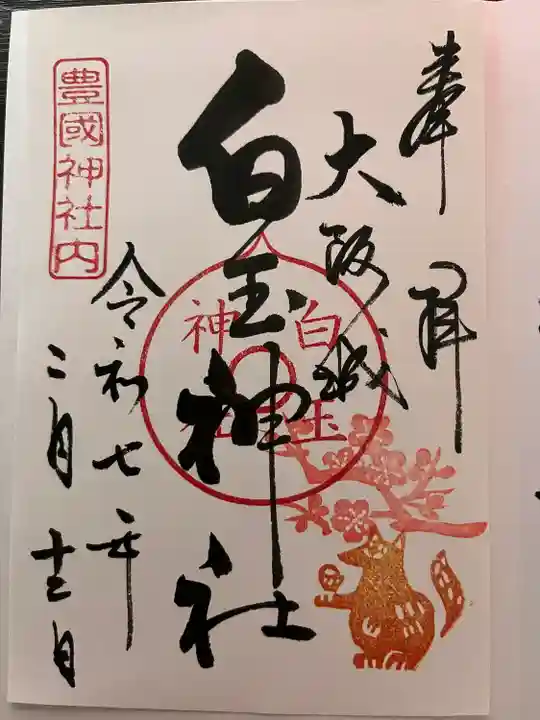 奉拝
大阪城
白玉神社
白玉
神社
令和七年
二月十三日
豊國神社内